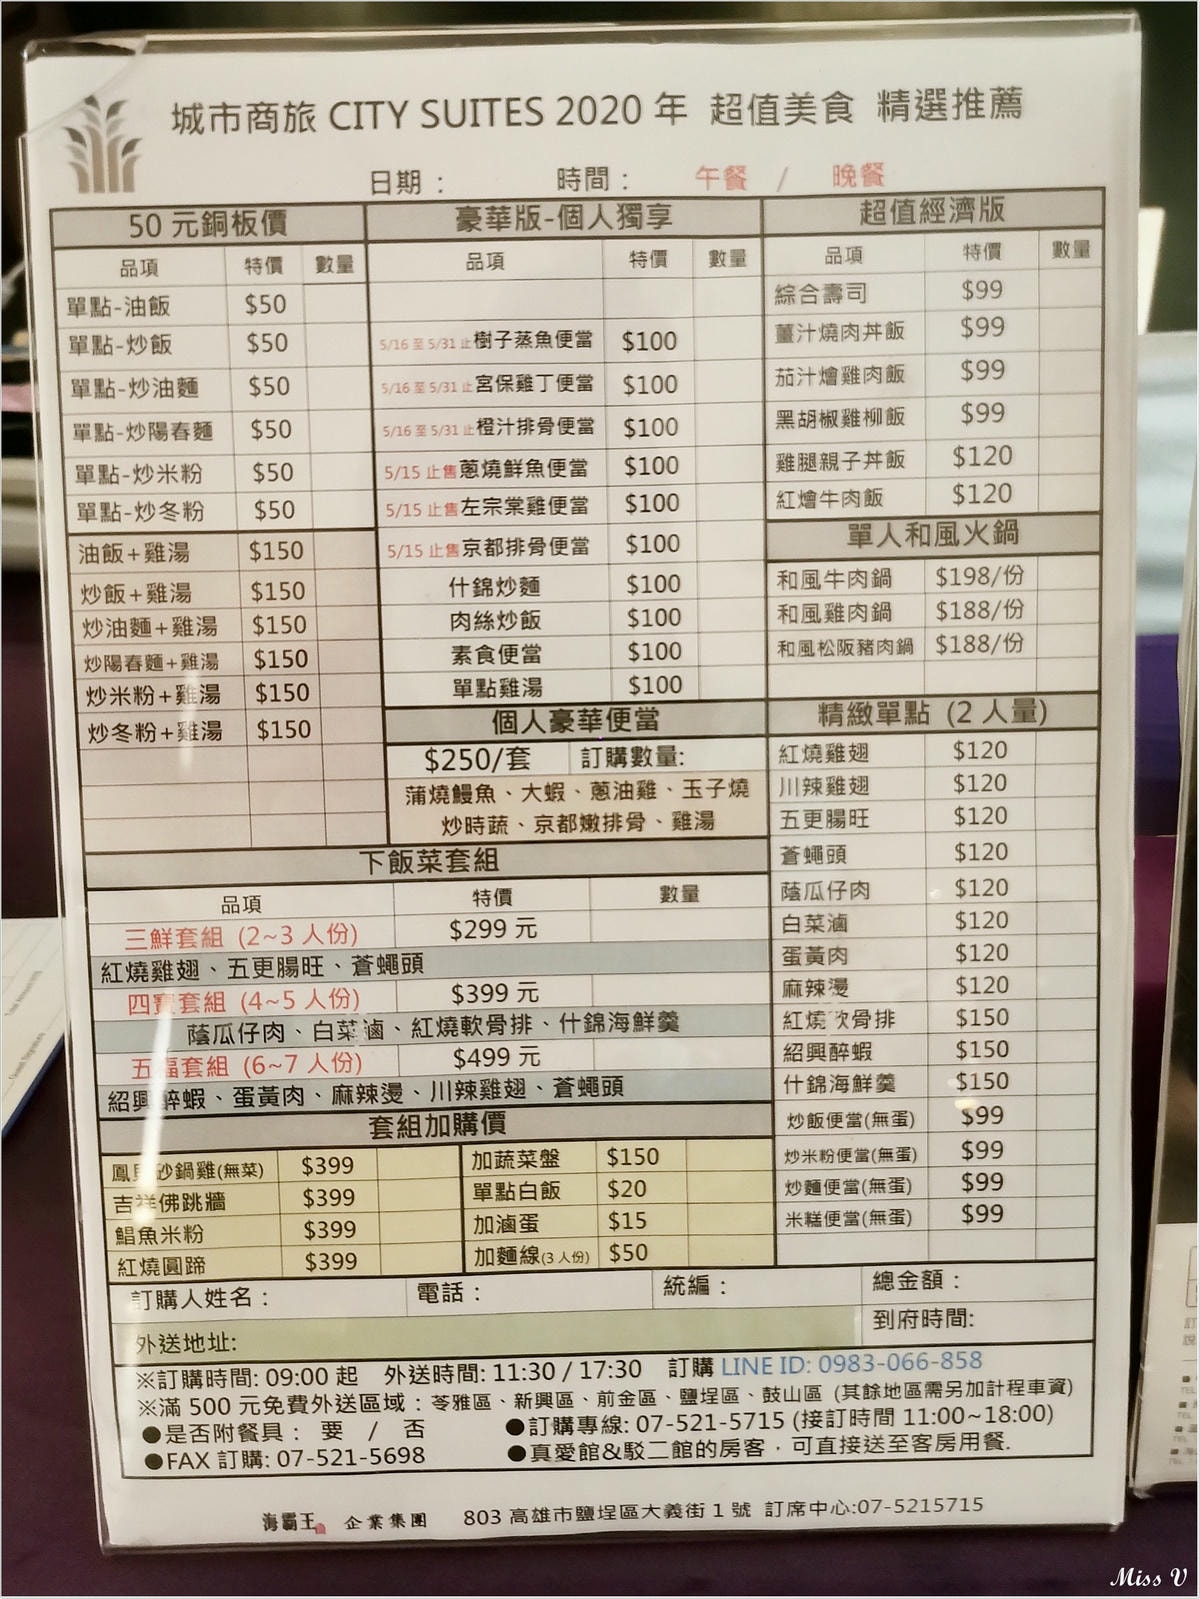 城市商旅 CITY SUITES 2020 年 超值美食 精選推薦
日期： 時間： 午餐 / 晚餐
50 元銅板價
品項 特價 數量
單點-油飯 $50
單點-炒飯 $50
單點-炒油麵 $50
單點-炒陽春麵 $50
單點-炒米粉 $50
單點-炒冬粉 $50
油飯+雞湯 $150
炒飯+雞湯 $150
炒油麵+雞湯 $150
炒陽春麵+雞湯 $150
炒米粉+雞湯 $150
炒冬粉+雞湯 $150
豪華版-個人獨享
品項 特價 數量
5/16 至 5/31 止樹子蒸魚便當 $100
5/16 至 5/31 止宮保雞丁便當 $100
5/16 至 5/31 止橙汁排骨便當 $100
5/15 止售蔥燒鮮魚便當 $100
5/15 止售左宗棠雞便當 $100
5/15 止售京都排骨便當 $100
什錦炒麵 $100
肉絲炒飯 $100
素食便當 $100
單點雞湯 $100
個人豪華便當
$250/套 訂購數量:
蒲燒鰻魚、大蝦、蔥油雞、玉子燒
炒時蔬、京都嫩排骨、雞湯
超值經濟版
品項 特價 數量
綜合壽司 $99
薑汁燒肉丼飯 $99
茄汁燴雞肉飯 $99
黑胡椒雞柳飯 $99
雞腿親子丼飯 $120
紅燴牛肉飯 $120
單人和風火鍋
和風牛肉鍋 $198/份
和風雞肉鍋 $188/份
和風松阪豬肉鍋 $188/份
精緻單點 (2 人量)
紅燒雞翅 $120
川辣雞翅 $120
五更腸旺 $120
蒼蠅頭 $120
蔭瓜仔肉 $120
白菜滷 $120
蛋黃肉 $120
麻辣燙 $120
紅燒軟骨排 $150
紹興醉蝦 $150
什錦海鮮羹 $150
炒飯便當(無蛋) $99
炒米粉便當(無蛋) $99
炒麵便當(無蛋) $99
米糕便當(無蛋) $99
下飯菜套組
品項 特價 數量
三鮮套組 (2~3 人份) $299 元
紅燒雞翅、五更腸旺、蒼蠅頭
四寶套組 (4~5 人份) $399 元
蔭瓜仔肉、白菜滷、紅燒軟骨排、什錦海鮮羹
五福套組 (6~7 人份) $499 元
紹興醉蝦、蛋黃肉、麻辣燙、川辣雞翅、蒼蠅頭
套組加購價
鳳 砂鍋雞(無菜) $399 加蔬菜盤 $150
吉祥佛跳牆 $399 單點白飯 $20
鯧魚米粉 $399 加滷蛋 $15
紅燒圓蹄 $399 加麵線(3 人份) $50
訂購人姓名： 電話： 統編： 總金額：
外送地址: 到府時間:
※訂購時間: 09:00 起 外送時間: 11:30 / 17:30 訂購 LINE ID: 0983-066-858
※滿 500 元免費外送區域：苓雅區、新興區、前金區、鹽埕區、鼓山區 (其餘地區需另加計程車資)
●是否附餐具： 要 / 否 ●訂購專線: 07-521-5715 (接訂時間 11:00~18:00)
●FAX 訂購: 07-521-5698 ●真愛館&駁二館的房客，可直接送至客房用餐.
海霸王 企業集團 803 高雄市鹽埕區大義街 1 號 訂席中心:07-5215715
Miss V